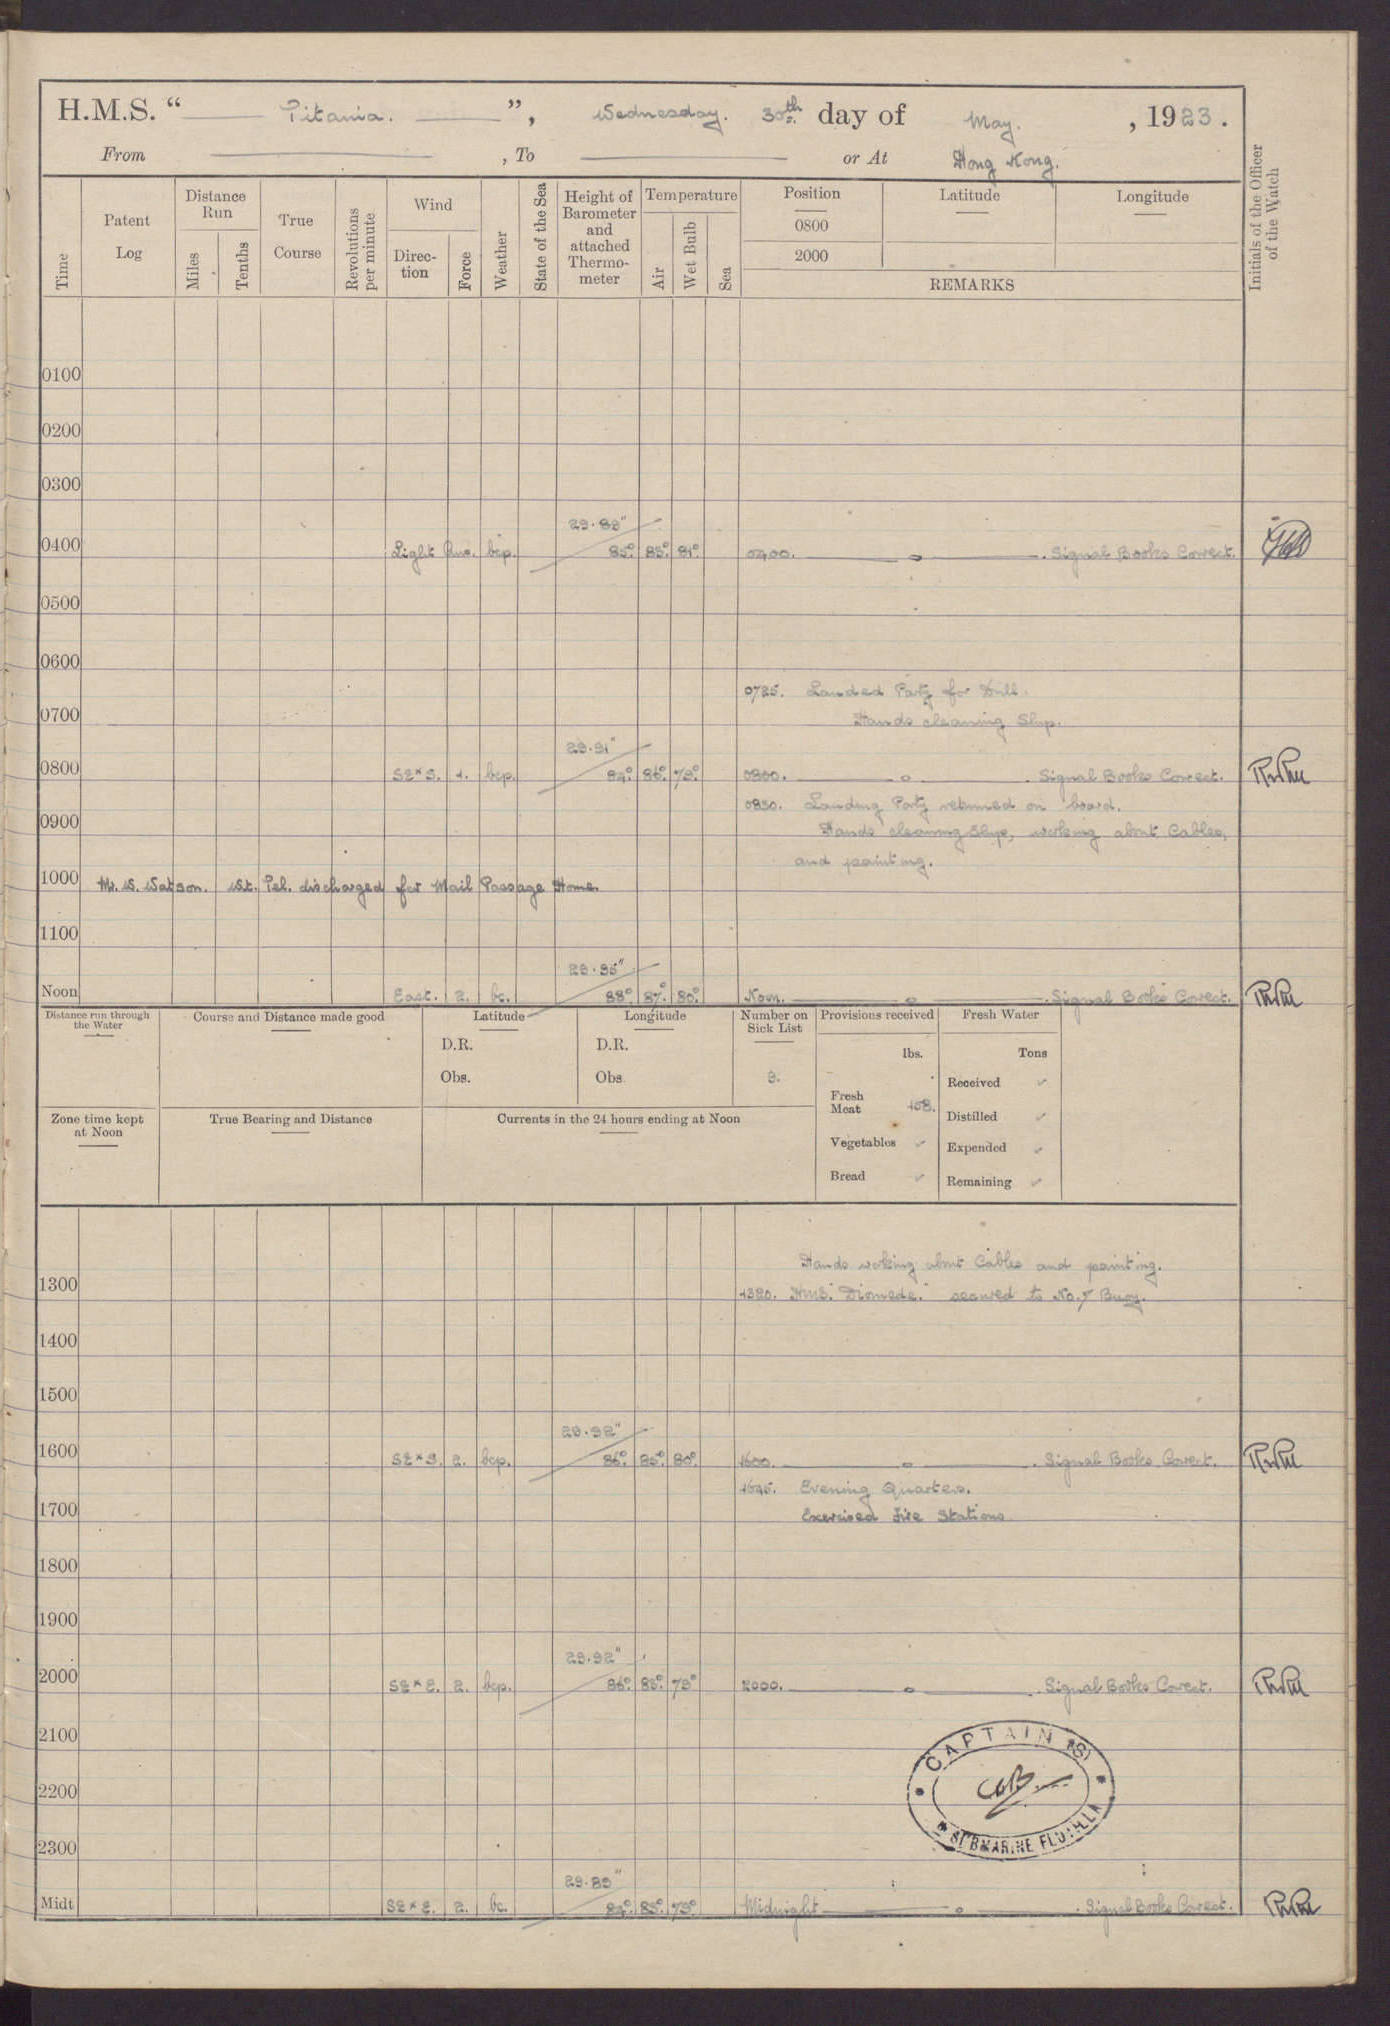 H.M.S. " Titania. ", Wednesday. 30th day of May. , 1923.
From , To or At Hong Kong.
Time
Patent Log
Distance Run
Miles
Tenths
True Course
Revolutions per minute
Wind
Direc-tion
Force
Weather
State of the Sea
Height of Barometer and attached Thermo-meter
Temperature
Air
Wet Bulb
Sea
Position
0800
2000
Latitude
Longitude
REMARKS
Initials of the Officer of the Watch
0100
0200
0300
29.89"
0400 Light Airs. bcp. 85° 83° 81° 0400. Signal Books Correct.
0500
0600
0725. Landed Party for Drill.
0700 Hands cleaning Ship.
29.91"
0800 SE x S. 1. bcp. 84° 86° 79° 0800. Signal Books Correct.
0830. Landing Party returned on board.
0900 Hands cleaning Ship, working about Cables,
and painting.
1000 Mr. W. Watson. Wt. Tel. discharged for Mail Passage Home.
1100
29.95"
Noon East. 2. bc. 88° 87° 80° Noon. Signal Books Correct.
Distance run through the Water
Course and Distance made good
Latitude
D.R.
Obs.
Longitude
D.R.
Obs.
Number on Sick List
9.
Provisions received
lbs.
Fresh Meat 108.
Vegetables
Bread
Fresh Water
Tons
Received
Distilled
Expended
Remaining
Zone time kept at Noon
True Bearing and Distance
Currents in the 24 hours ending at Noon
Hands working about Cables and painting.
1300 1320. H.M.S. "Diomede." secured to No. 7 Buoy.
1400
1500
29.92"
1600 SE x S. 2. bcp. 86° 85° 80° 1600. Signal Books Correct.
1645. Evening Quarters.
1700 Exercised Fire Stations
1800
1900
29.92"
2000 SE x E. 2. bcp. 86° 83° 79° 2000. Signal Books Correct.
2100
CAPTAIN (S)
2200
SUBMARINE FLOTILLA
2300
29.89"
Midt SE x E. 2. bc. 84° 83° 79° Midnight Signal Books Correct.